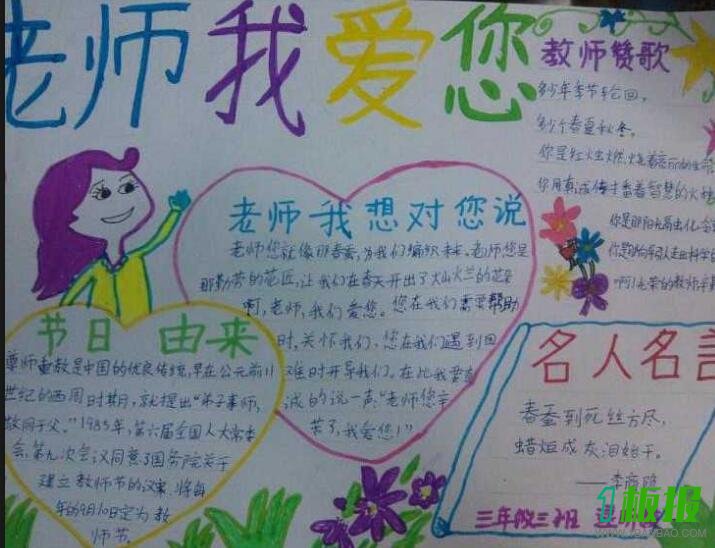 老师我爱您
教师赞歌
多少年季节轮回，
多少个春夏秋冬。
你是红火
你用真
智慧的火
你是那阳光
啊！光荣的教师
老师我想对您说
老师您就像那春蚕，为我们编织未来。老师您是
那勤劳的花匠，让我们在春天开出了火山火兰的花朵
啊，老师，我们爱您。您在我们需要帮助
时，关怀我们，您在我们遇到困
难时开导我们。在此我要真
诚的说一声："老师您辛
苦了，我爱您！"
节日 由来
尊师重教是中国的优良传统，早在公元前11
世纪的西周时期，就提出"弟子事师，
敬同于父。"1985年，第六届全国人大常委
会第九次会议同意了国务院关于
建立教师节的议案，将每
年的9月10日定为教
师节。
名人名言
春蚕到死丝方尽，
蜡炬成灰泪始干。
——李商隐
三年级三班
1板报
1BANBAO.COM